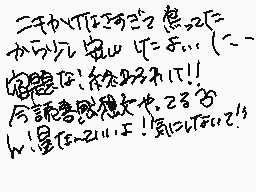 ニキかけなさすぎて焦ってた
から少し安心したよ… (--
宿題な!終わるれて!!
今読書感想文やってるか
ん!量なんていいよ!気にしないで!!